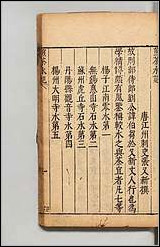 唐江州刺史張又新撰
故刑部侍郎劉公諱伯芻於又新丈人行也為
學精博頗有風鑒稱較水之與茶宜者凡七等
揚子江南零水第一
無錫惠山寺石水第二
蘇州虎丘寺石水第三
丹陽縣觀音寺水第四
揚州大明寺水第五